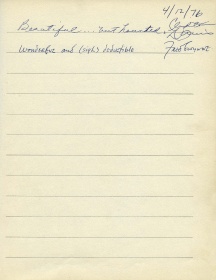 4/12/76
Beautiful... but haunted.
Wonderful and (sigh) deductible